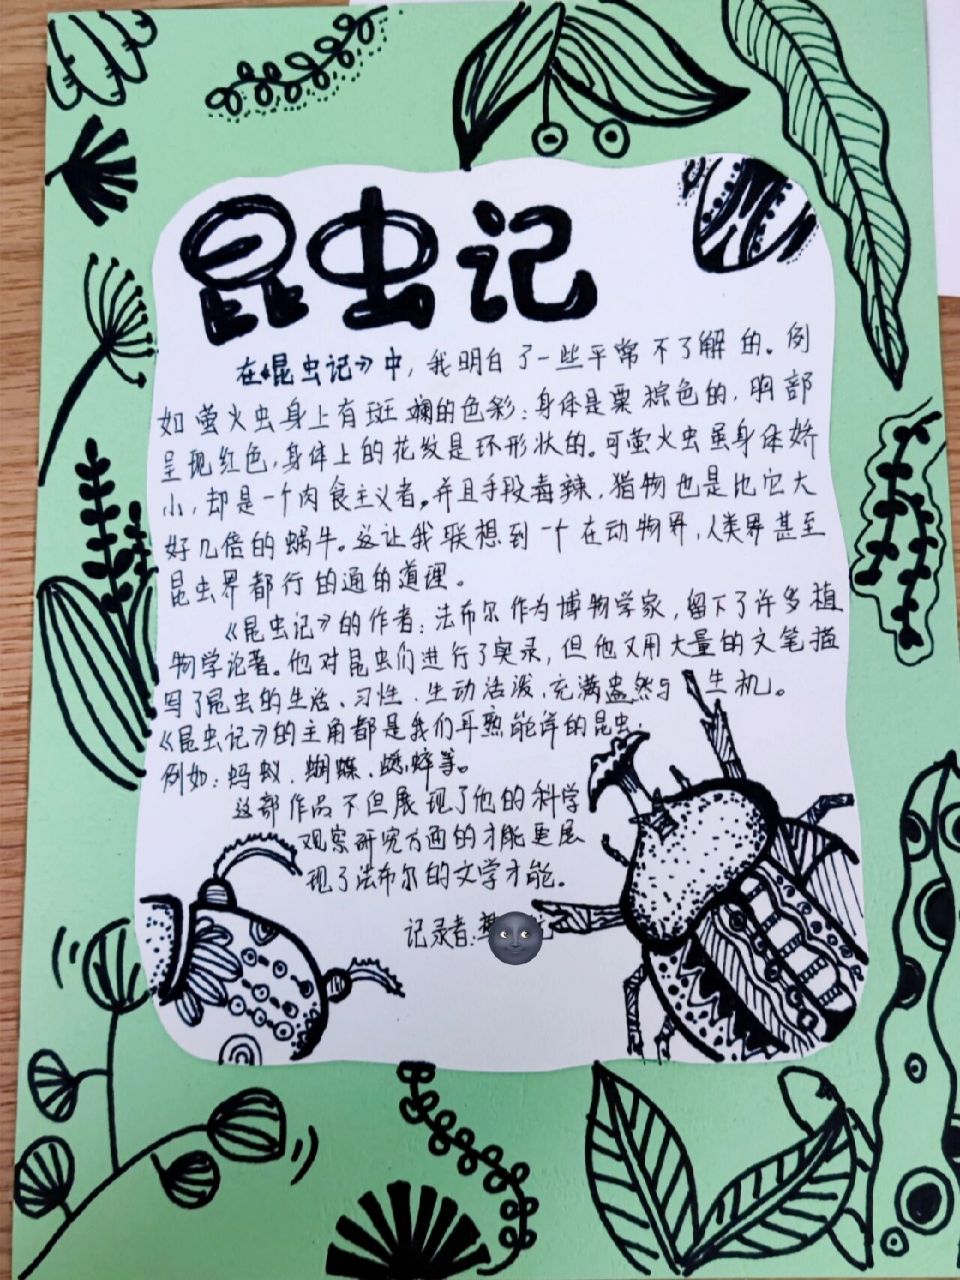 昆虫记
在《昆虫记》中，我明白了一些平常不了解的。例
如萤火虫身上有斑斓的色彩：身体是栗棕色的，胸部
呈现红色，身体上的花纹是环形状的。可萤火虫虽身体娇
小，却是一个肉食主义者。并且手段毒辣，猎物也是比它大
好几倍的蜗牛。这让我联想到一个在动物界，人类界甚至
昆虫界都行的通的道理。
《昆虫记》的作者：法布尔作为博物学家，留下了许多植
物学论著。他对昆虫们进行了实录，但他又用大量的文笔描
写了昆虫的生活、习性，生动活泼，充满盎然与生机。
《昆虫记》的主角都是我们耳熟能详的昆虫，
例如：蚂蚁、蝴蝶、蟋蟀等。
这部作品不但展现了他的科学
观察研究方面的才能更展
现了法布尔的文学才能。
记录者：